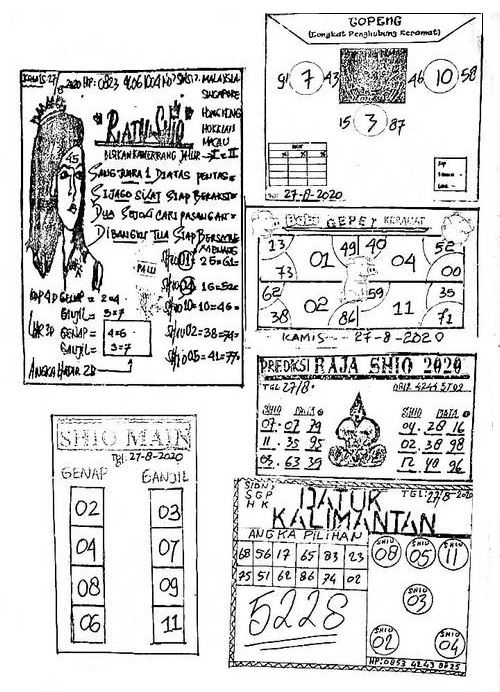 TOPENG
(Tongkat Penghubung Keramat)
91 7 43
46 10 58
15 3 87
27-8-2020
KAMIS 27-8-2020 HP: 0823
MALAYSIA
SINGAPORE
HONGKONG
HOKKIAN
MACAU
RATU SHIO
BISIKAN KAMERBANG JALUR = I = II
45
SANG JUARA 1 DIATAS PENTAS =
SIJAGO SILAT SIAP BERAKSI =
DUA SEJOLI CARI PASANGAN =
DIBANGKU TUA SIAP BERSAMA
MENANG
PALU
SHIO 01 25=61=
SHIO 04 16=52=
SHIO 10=10=46=
SHIO 02=38=74=
SHIO 05=41=77=
KOP 4D GENAP = 2=4
GANJIL = 5=7
KOP 2D GENAP = 4=6
GANJIL = 3=7
ANGKA HADIR 2D
BABI GEPET KERAMAT
13 73 01 49 40 04 52 00
62 38 02 86 59 11 35 71
KAMIS 27-8-2020
PREDIKSI RAJA SHIO 2020
TGL 27/8
SHIO DATA
07.07 79
11.35 95
03.63 39
SHIO DATA
04.28 16
02.38 98
12.48 96
SHIO MAIN
Tgl. 27-8-2020
GENAP GANJIL
02 03
04 07
08 09
06 11
SIDNY
SGP
HK
DATUK
KALIMANTAN
TGL: 27/8-2020
ANGKA PILIHAN
68 56 17 65 83 23
75 51 62 86 74 02
5228
SHIO 08 SHIO 05 SHIO 11
SHIO 03
SHIO 02 SHIO 04
HP: 0853 4243 8725